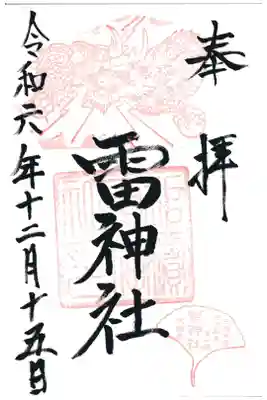 奉拝
雷神社
令和六年十二月十五日